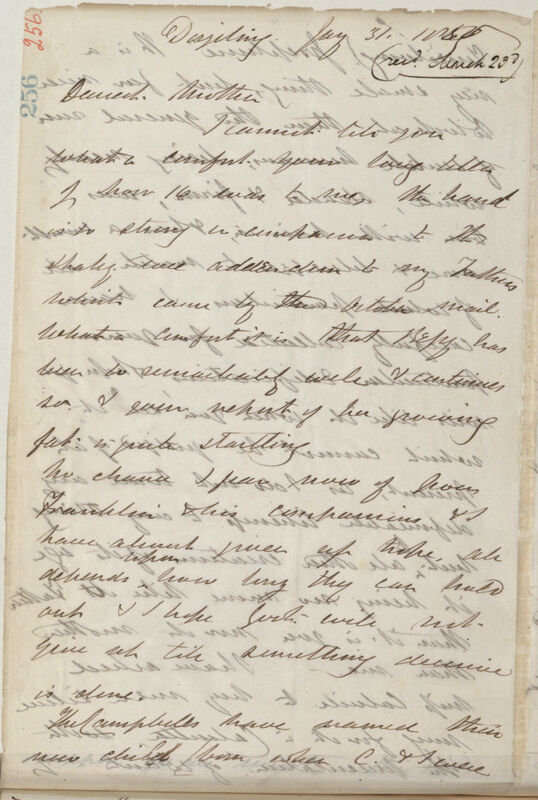 256
256
Darjeeling Jay 31. 1850
(recd March 23d)
Dearest Mother
I cannot tell you
what a comfort your long letter
of Novr 16 was to me, the hand
is so strong in comparison to the
shaky one addendum to my Fathers
which came by the October mail.
What a comfort it is that Bessy has
been so remarkably well & continues
so & your report of her growing
fat is quite startling
No chance I fear now of
Franklin & his companions & I
have almost given up hope, all
depends upon how long they can hold
out & I hope Govt. will not
give up till something decisive
is done.
The Campbells have named their
new child born when C. & I were